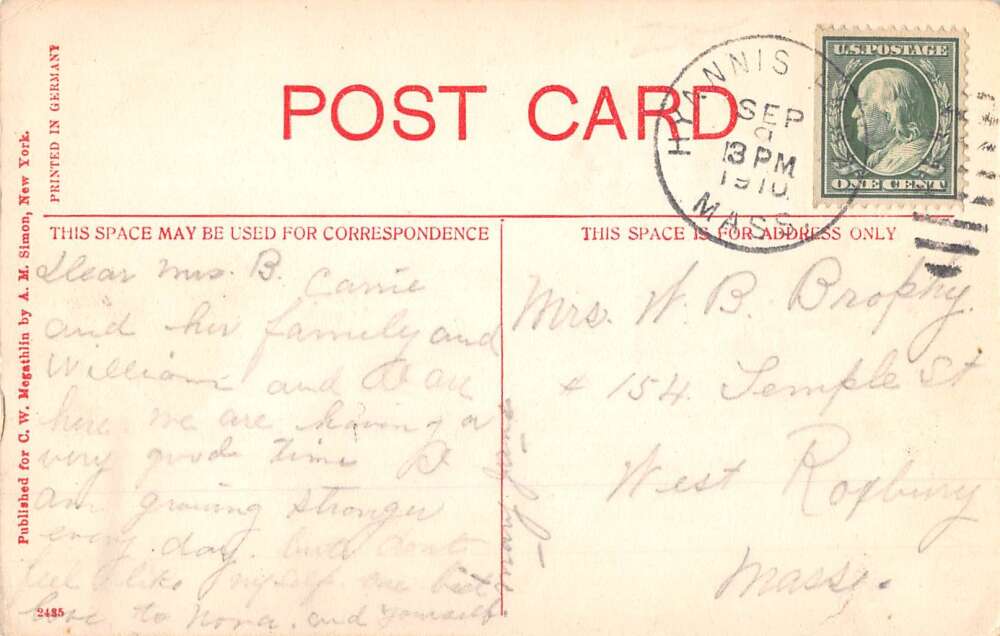 PRINTED IN GERMANY
Published for C. W. Megathlin by A. M. Simon, New York.
POST CARD
HYANNIS
SEP
9
3 PM
1910
MASS.
U.S. POSTAGE
ONE CENT
THIS SPACE MAY BE USED FOR CORRESPONDENCE
THIS SPACE IS FOR ADDRESS ONLY
Dear Mrs. B. Carrie
and her family and
William and I are
here we are having a
very good time I
am growing stronger
every day. but dont
feel like myself one bit
love to Nora. and yourself
Mrs. W. B. Brophy.
154 Temple St
West Roxbury
Mass.
2485